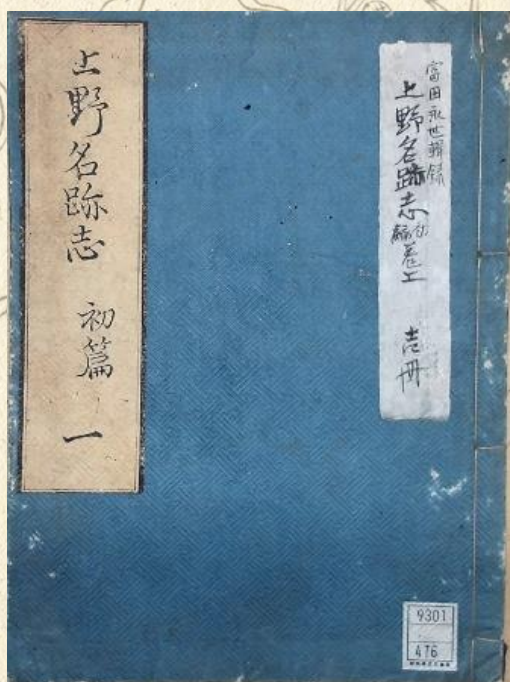 上野名跡志 初篇 一
富田永世輯録
上野名跡志 初編 卷上 壱冊
9301
476